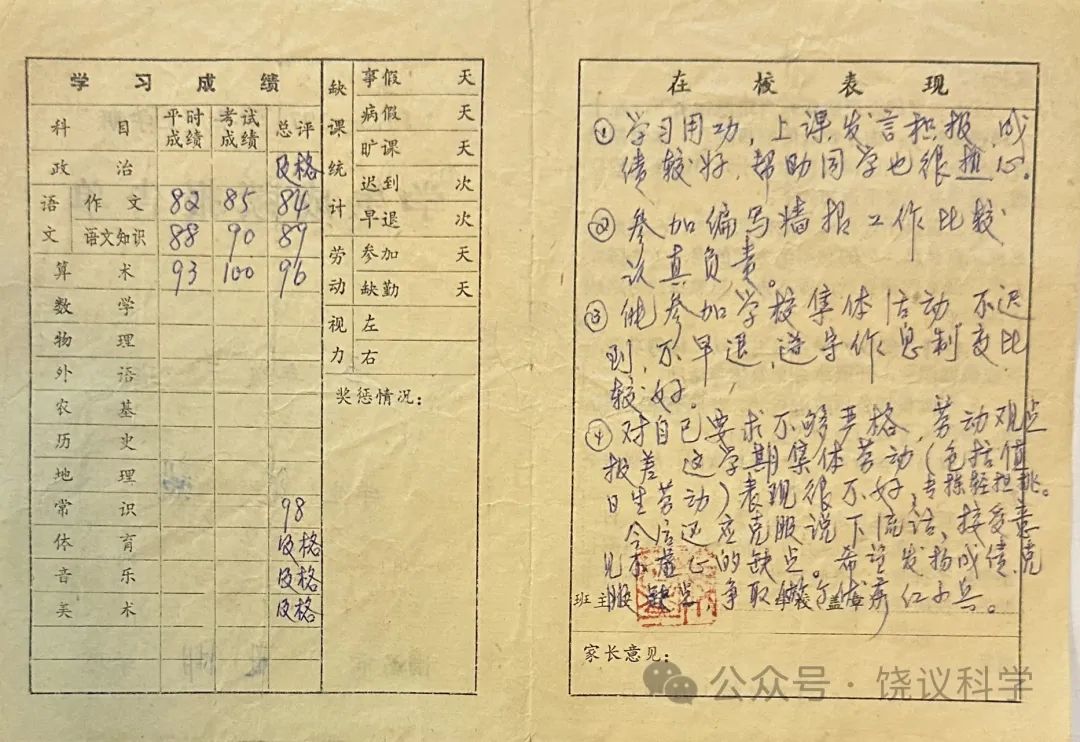 学习成绩
科目 平时成绩 考试成绩 总评
政治 及格
语文 作文 82 85 84
语文知识 88 90 89
算术 93 100 96
数学
物理
外语
农基
历史
地理
常识 98
体育 及格
音乐 及格
美术 及格
缺课统计
事假 天
病假 天
旷课 天
迟到 次
早退 次
劳动
参加 天
缺勤 天
视力
左
右
奖惩情况：
在校表现
① 学习用功，上课发言积报，成
绩较好，帮助同学也很热心。
② 参加编写墙报工作比较
认真负责。
③ 能参加学校集体活动，不迟
到，不早退，遵守作息制度比
较好。
④ 对自己要求不够严格，劳动观点
报差，这学期集体劳动（包括值
日生劳动）表现很不好，专拣轻担挑。
今后还应克服说下流话、接受意
见不虚心的缺点。希望发扬成绩，克
服缺点，争取做个优秀红小兵。
班主 学校盖章
家长意见：
公众号·饶议科学